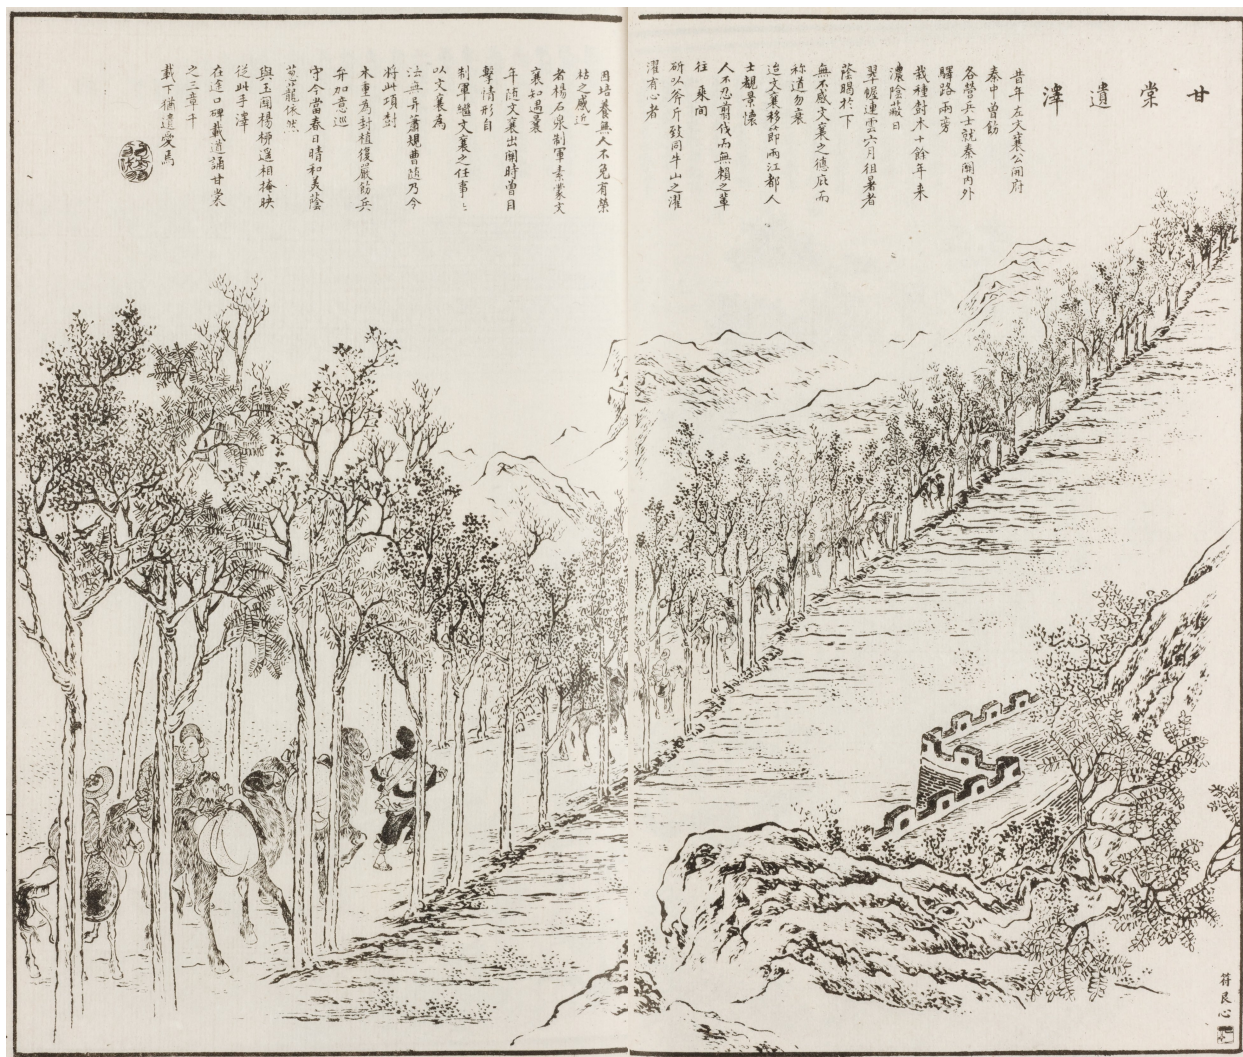 甘棠遺澤
昔年左文襄公開府
秦中曾飭
各營兵士就秦關內外
驛路兩旁
栽種封木十餘年来
濃陰蔽日
翠幄連雲六月徂暑者
蔭暍於下
無不感文襄之德庇而
称道勿衰
迨文襄移節兩江都人
士覩景懷
人不忍剪伐而無賴之輩
往往乘間
斫以斧斤致同牛山之濯
濯有心者
因培養無人不免有榮
枯之感近
者楊石泉制軍素蒙文
襄知遇曩
年随文襄出關時曾目
擊情形自
制軍繼文襄之任事々
以文襄為
法無異蕭規曹随乃今
將此項封
木重為封植復嚴飭兵
弁加意巡
守今當春日晴和美蔭
葱蘢依然
與玉關楊柳遥相掩映
從此手澤
在途口碑載道誦甘棠
之三章千
載下猶遺愛焉
符艮心